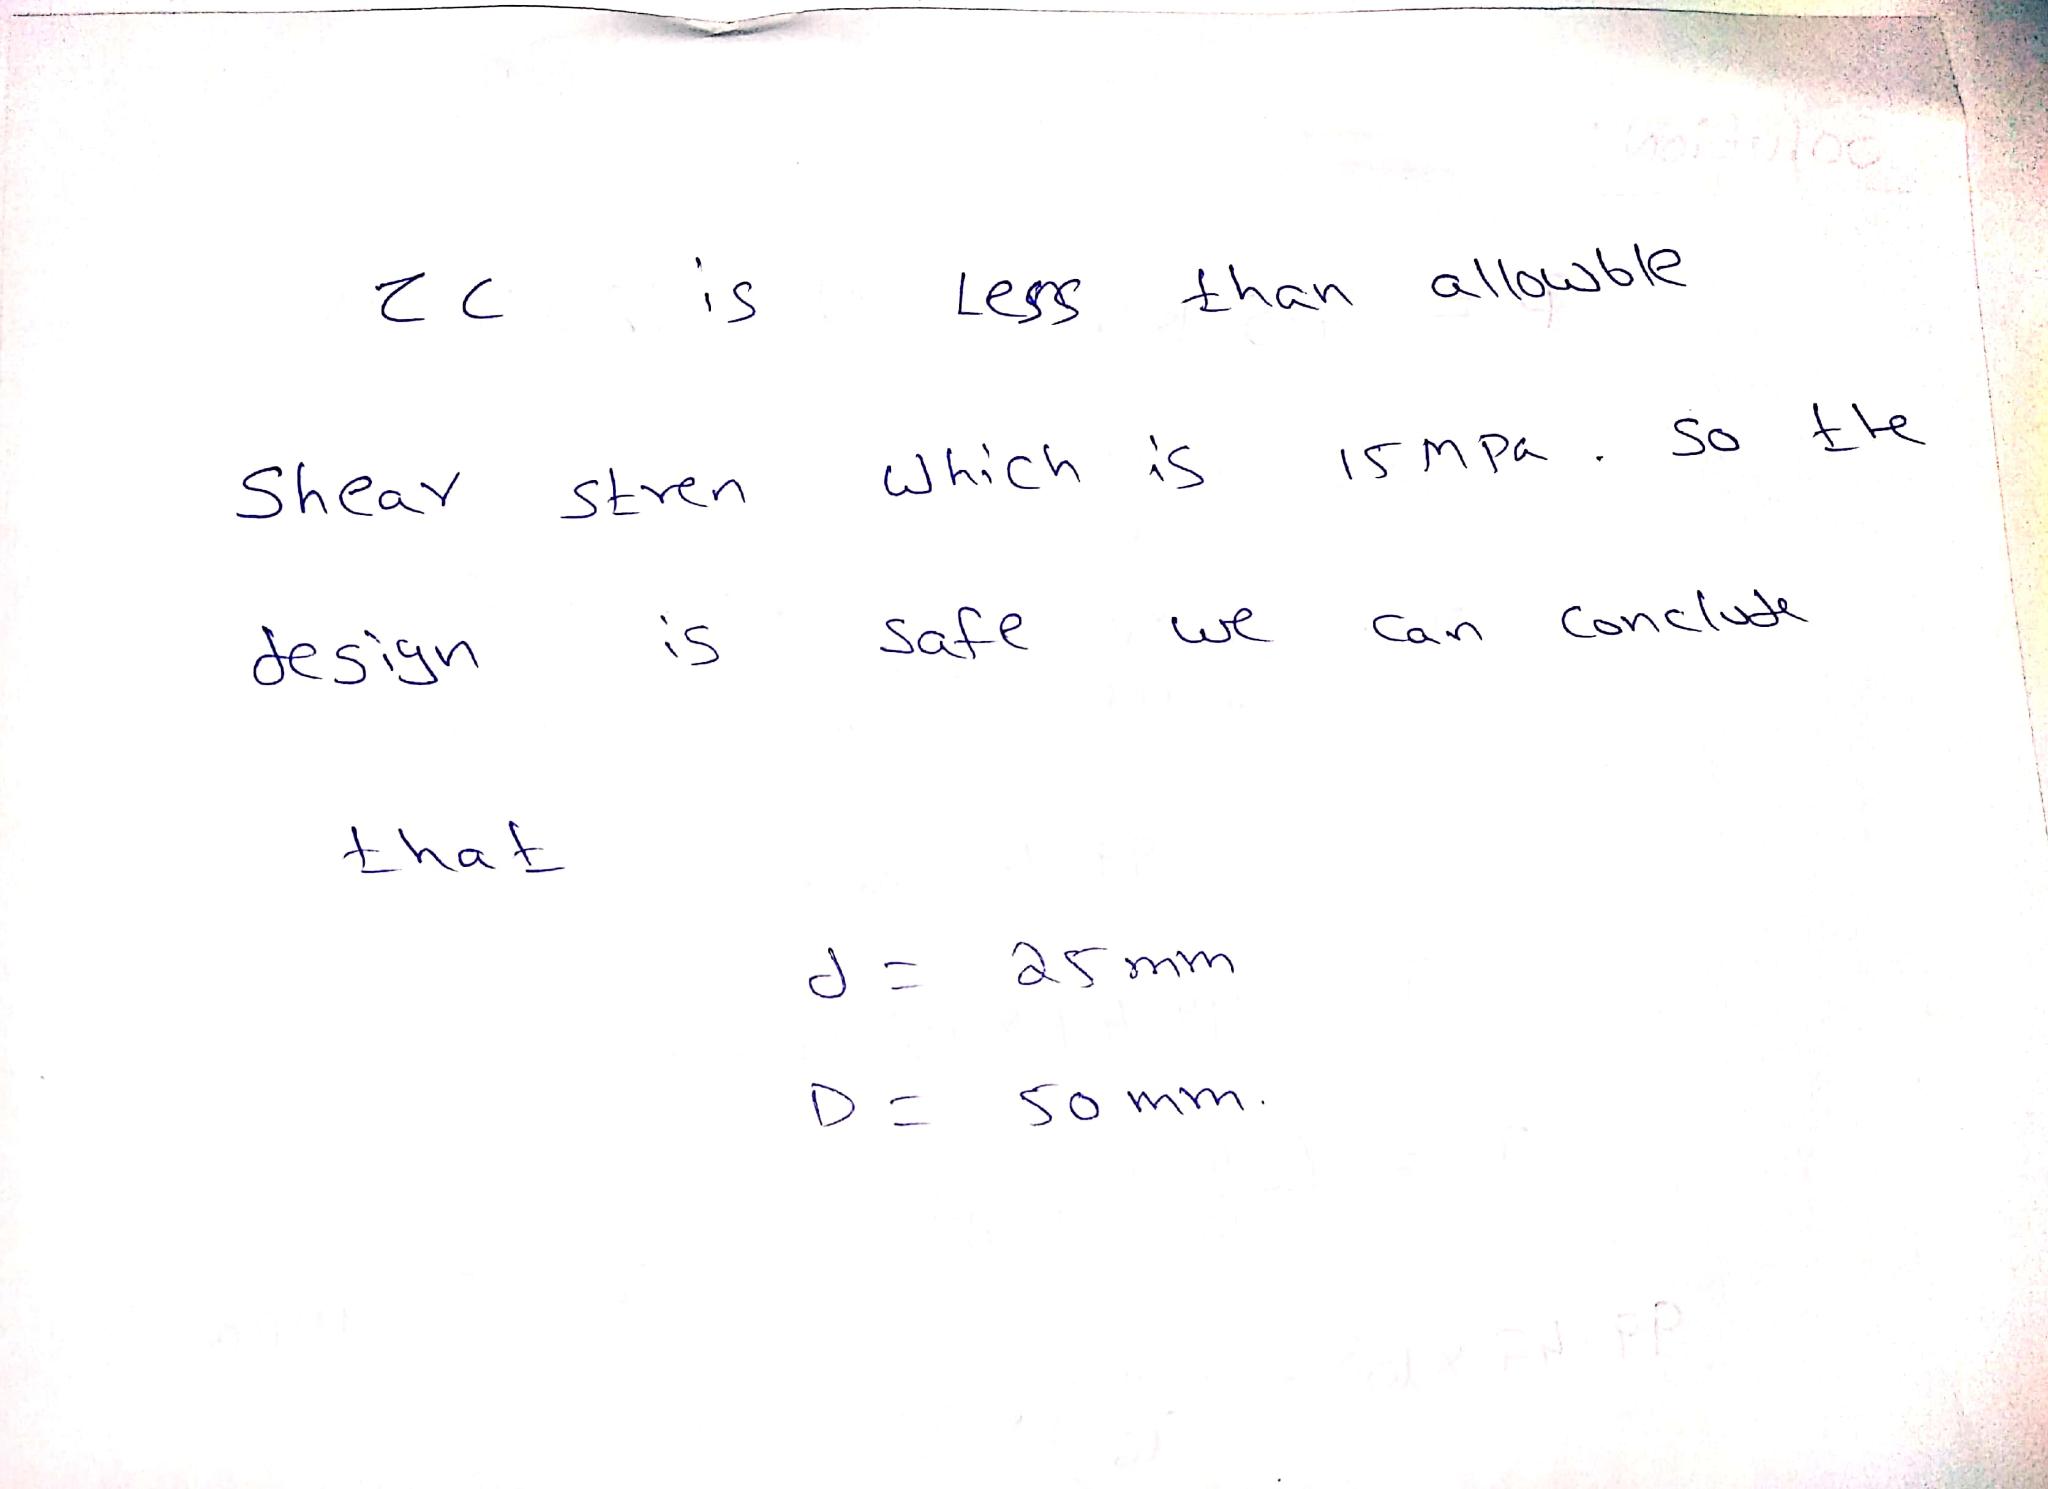 τc is Less than allowble
Shear stren which is 15 mpa. so the
design is safe we can conclude
that
d = 25 mm
D = 50 mm.